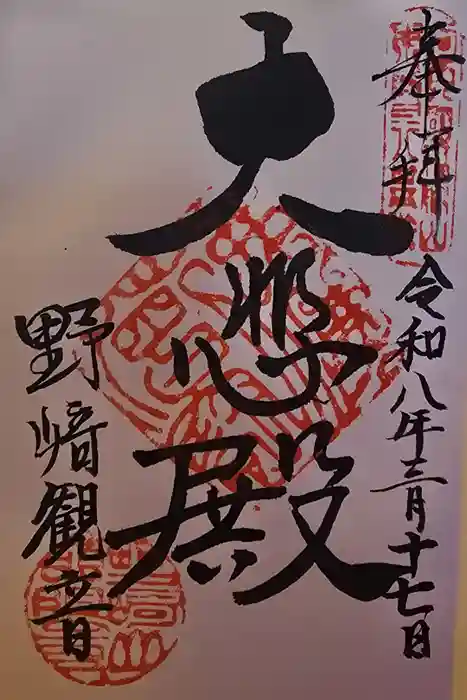 奉拝
令和八年三月十七日
大悲殿
野﨑観音